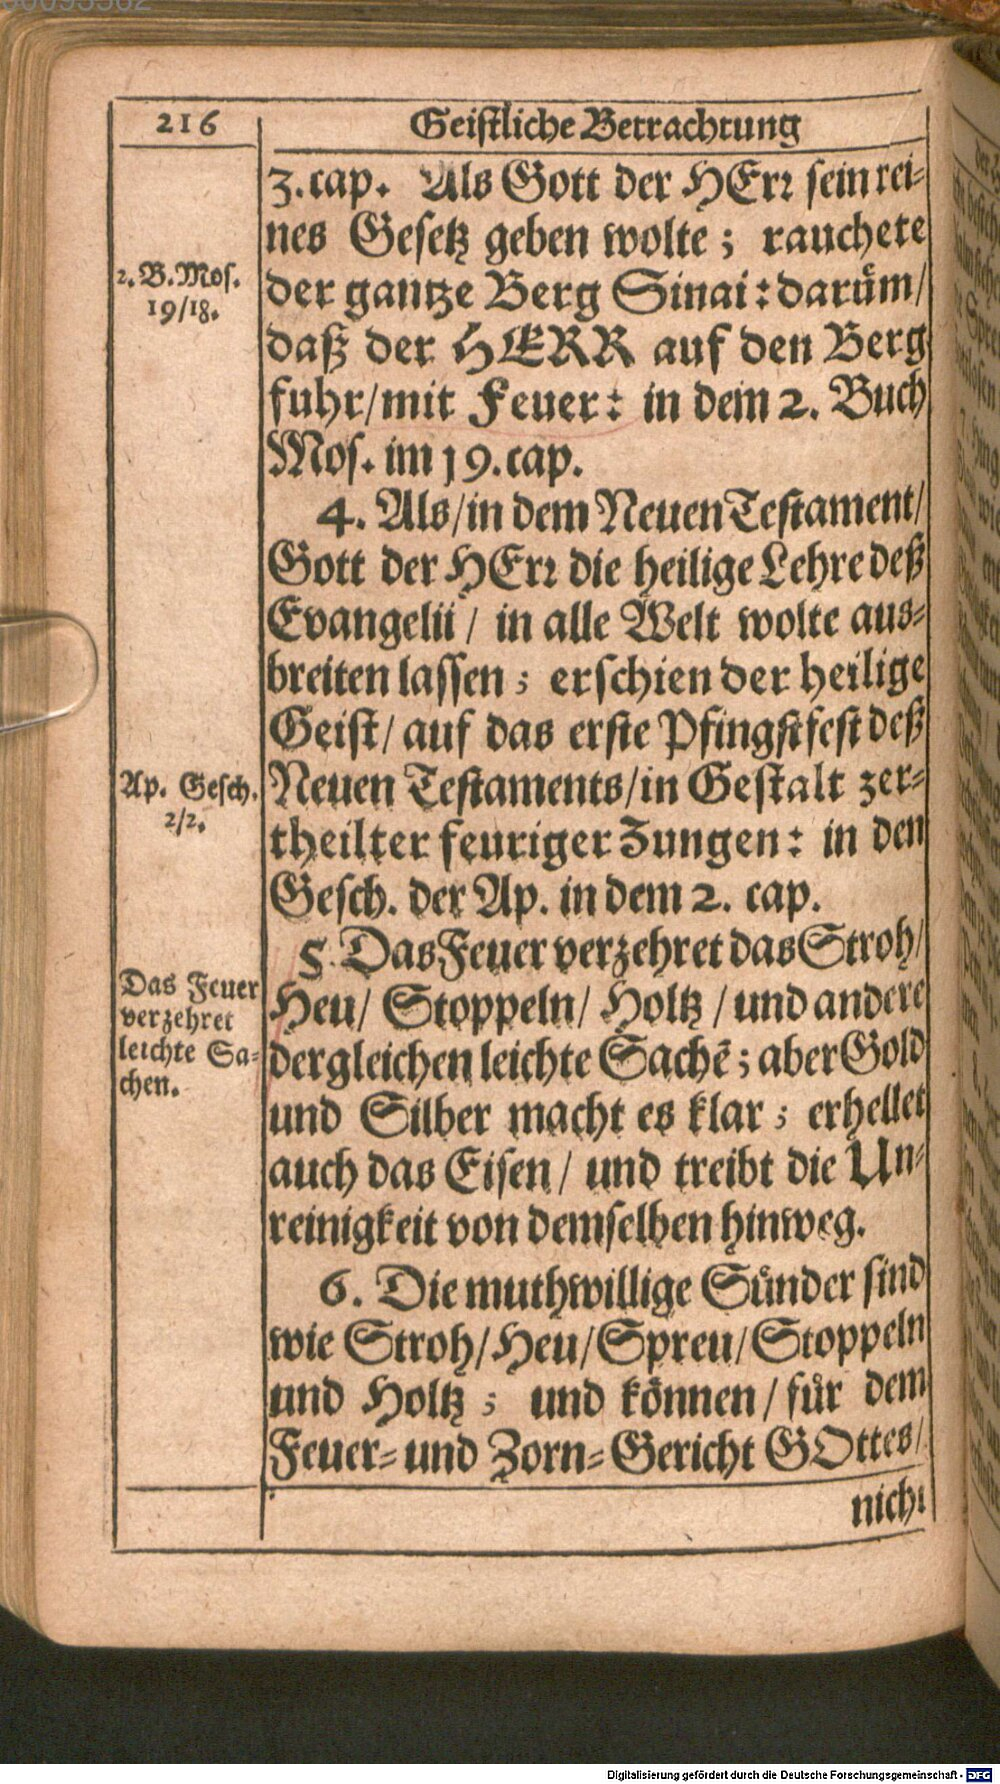 216
Geistliche Betrachtung
3. cap. Als Gott der HErr sein rei-
nes Gesetz geben wolte; rauchete
2. B. Mos.
19/18.
der gantze Berg Sinai: darüm/
daß der HERR auf den Berg
fuhr/mit Feuer: in dem 2. Buch
Mos. im 19. cap.
4. Als/in dem Neuen Testament/
Gott der HErr die heilige Lehre deß
Evangelii / in alle Welt wolte aus-
breiten lassen; erschien der heilige
Geist/ auf das erste Pfingstfest deß
Ap. Gesch.
2/2.
Neuen Testaments/in Gestalt zer-
theilter feuriger Zungen: in den
Gesch. der Ap. in dem 2. cap.
5. Das Feuer verzehret das Stroh/
Das Feuer
verzehret
leichte Sa-
chen.
Heu/ Stoppeln/ Holtz / und andere
dergleichen leichte Sachē; aber Gold
und Silber macht es klar; erhellet
auch das Eisen / und treibt die Un-
reinigkeit von demselben hinweg.
6. Die muthwillige Sünder sind
wie Stroh/Heu/Spreu/Stoppeln
und Holtz; und können / für dem
Feuer- und Zorn-Gericht GOttes/
nicht
Digitalisierung gefördert durch die Deutsche Forschungsgemeinschaft - DFG